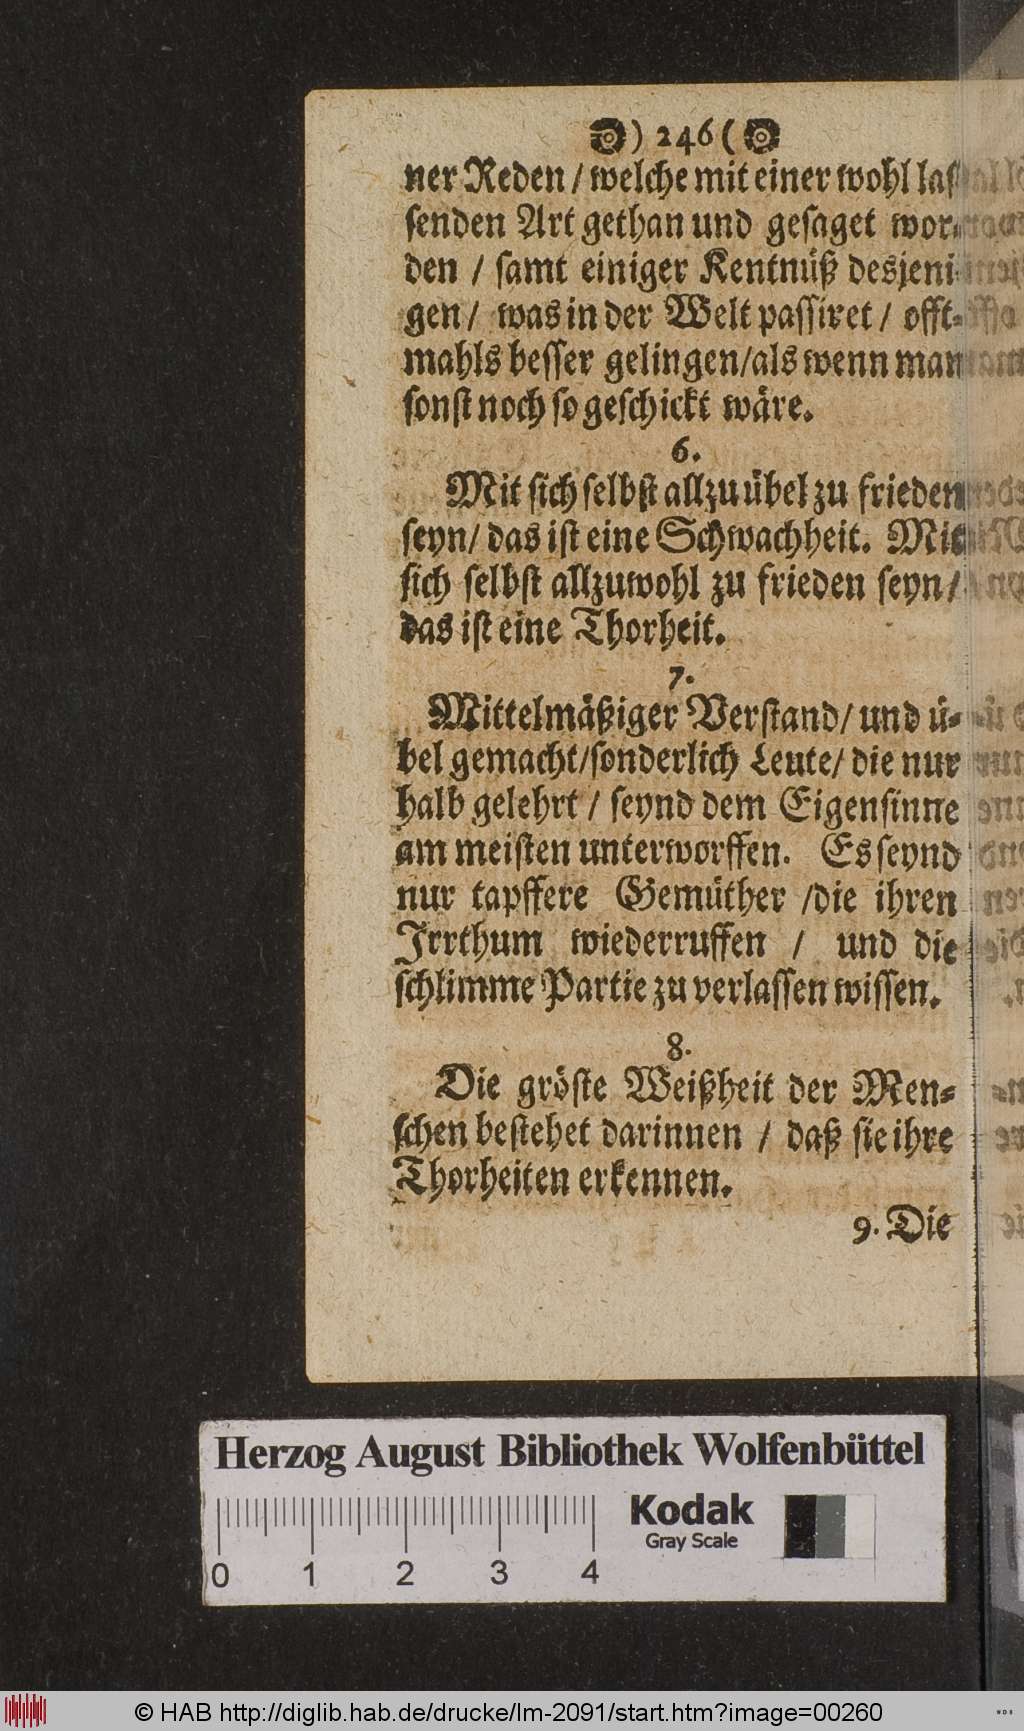 ) 246 (
ner Reden / welche mit einer wohl las-
senden Art gethan und gesaget wor-
den / samt einiger Kentnüß desjeni-
gen / was in der Welt passiret / offt-
mahls besser gelingen / als wenn man
sonst noch so geschickt wäre.
6.
Mit sich selbst allzu übel zu frieden
seyn / das ist eine Schwachheit. Mit
sich selbst allzuwohl zu frieden seyn /
das ist eine Thorheit.
7.
Mittelmäßiger Verstand / und ü-
bel gemacht / sonderlich Leute / die nur
halb gelehrt / seynd dem Eigensinne
am meisten unterworffen. Es seynd
nur tapffere Gemüther / die ihren
Irrthum wiederruffen / und die
schlimme Partie zu verlassen wissen.
8.
Die gröste Weißheit der Men-
schen bestehet darinnen / daß sie ihre
Thorheiten erkennen.
9. Die
Herzog August Bibliothek Wolfenbüttel
Kodak
Gray Scale
0 1 2 3 4
© HAB http://diglib.hab.de/drucke/lm-2091/start.htm?image=00260